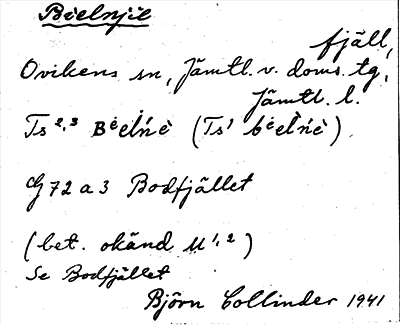 Bielnjie
fjäll,
Ovikens sn, Jämtl. v. doms. tg,
Jämtl. l.
Ts²,³ Bėelńė (Ts¹ bėelńė)
G 72 a 3 Bodfjället
(bet. okänd M¹,²)
Se Bodfjället
Björn Collinder 1941